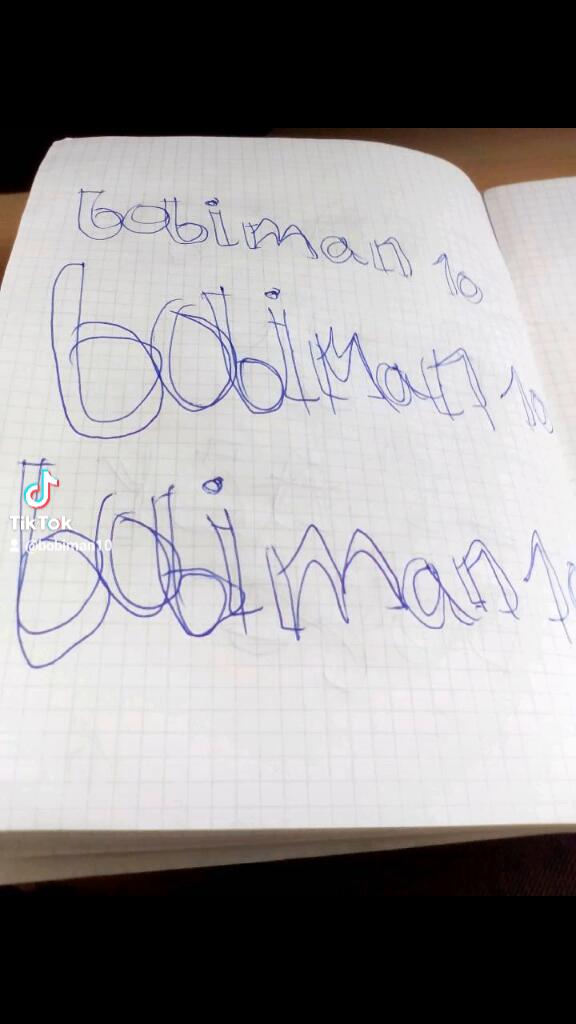 bobiman 10
bobiman 10
TikTok
@bobiman10
bobiman 10